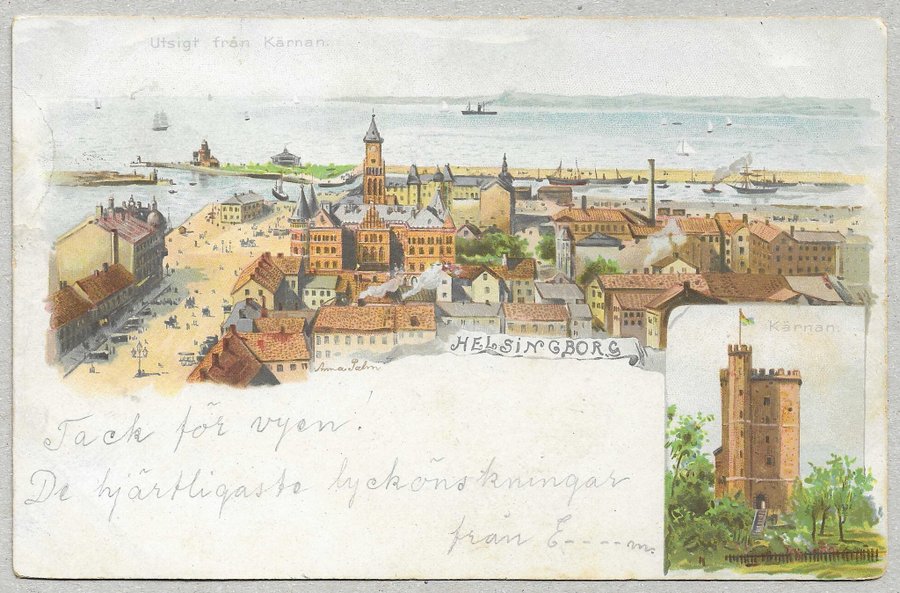 Utsigt från Kärnan.
HELSINGBORG
Anna Palm
Kärnan.
Tack för vyen!
De hjärtligaste lyckönskningar
från E-----m.